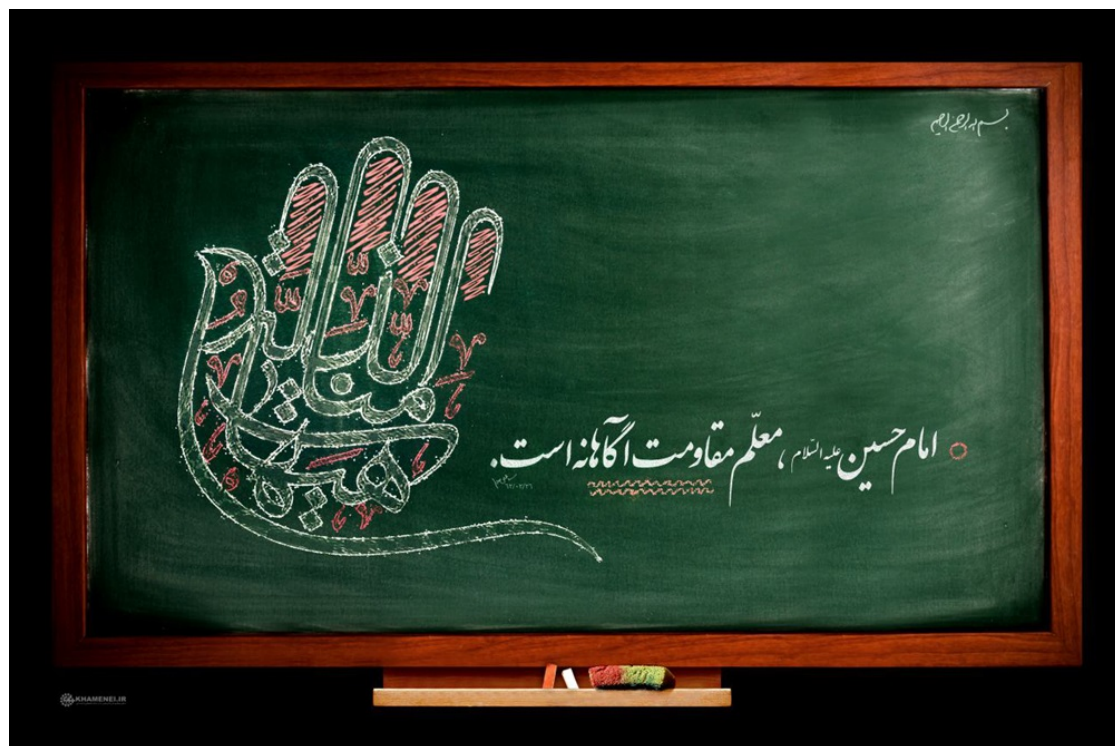 بسم الله الرحمن الرحیم
هیهات منا الذلة
امام حسین علیه السلام، معلّم مقاومت آگاهانه است.
KHAMENEI.IR